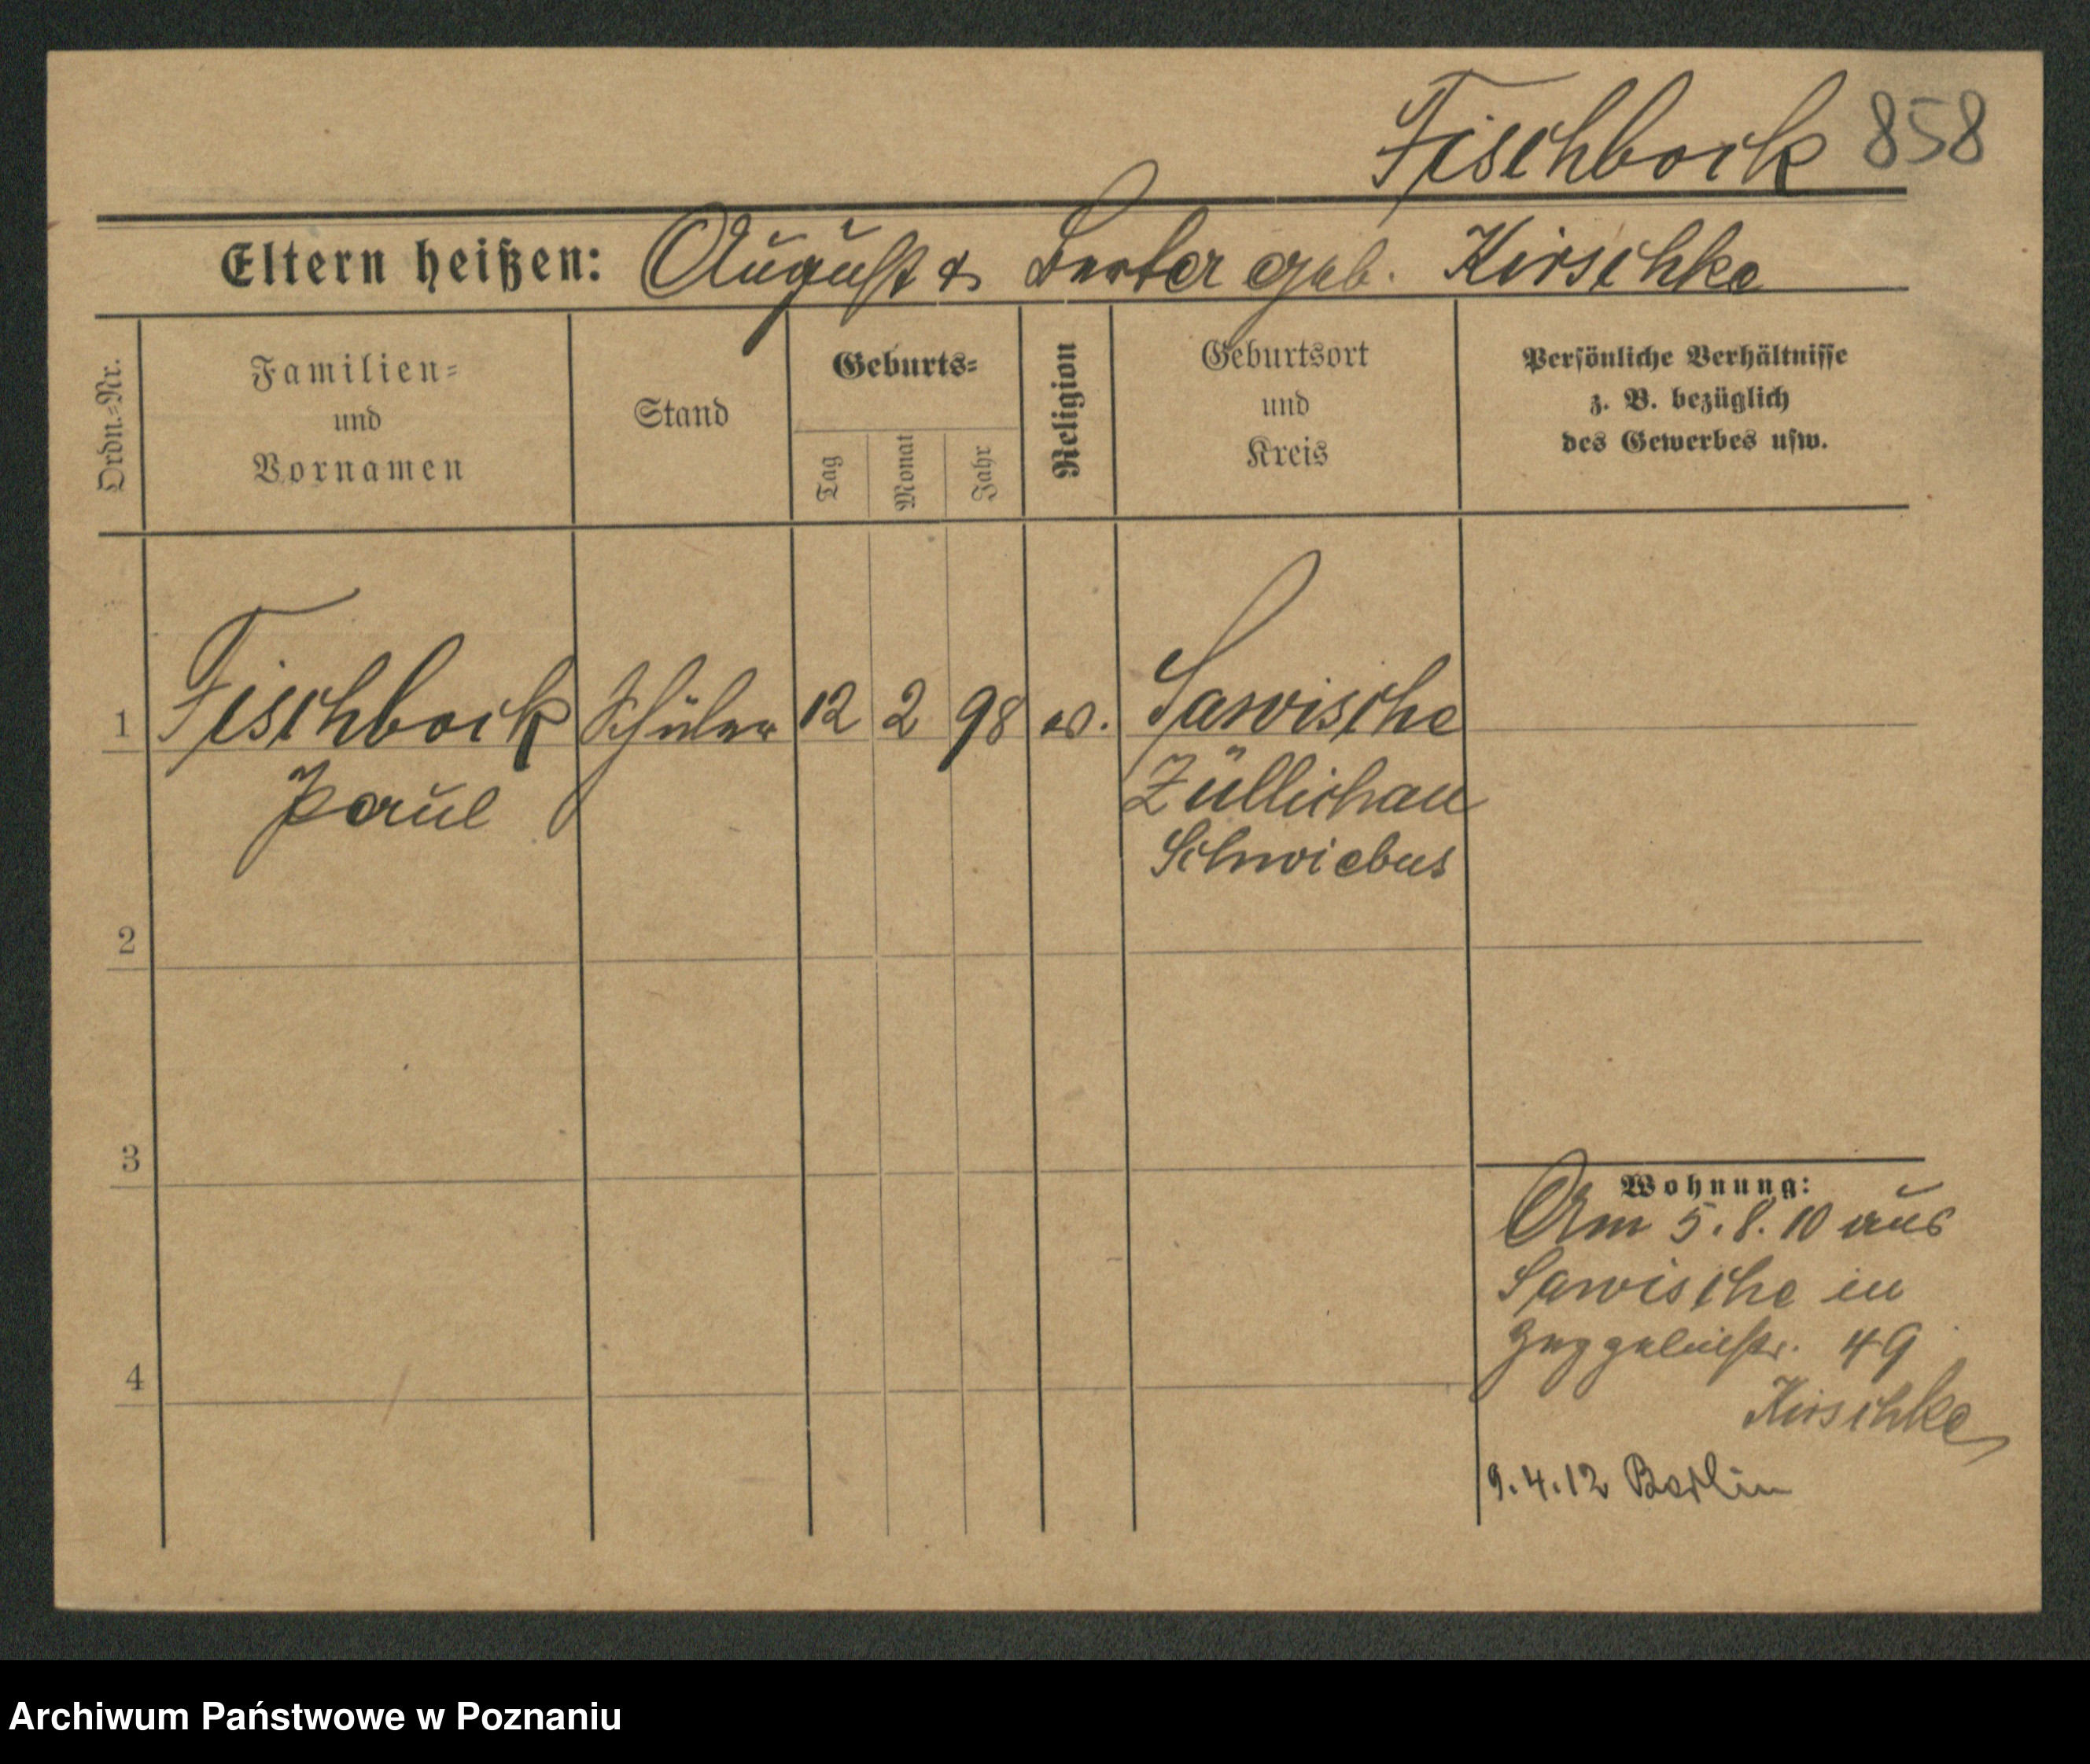 Fischbock 858
Eltern heißen: August & Berta geb. Kirschke
Ordn.=Nr.
Familien=
und
Vornamen
Stand
Geburts=
Tag
Monat
Jahr
Religion
Geburtsort
und
Kreis
Persönliche Verhältnisse
z. B. bezüglich
des Gewerbes usw.
1 Fischbock Schüler 12 2 98 ev. Sawische
Paul Züllichau
Schwiebus
2
3
Wohnung:
Am 5.8.10 aus
Sawische in
49
4
Kirschke
9.4.12 Berlin
Archiwum Państwowe w Poznaniu